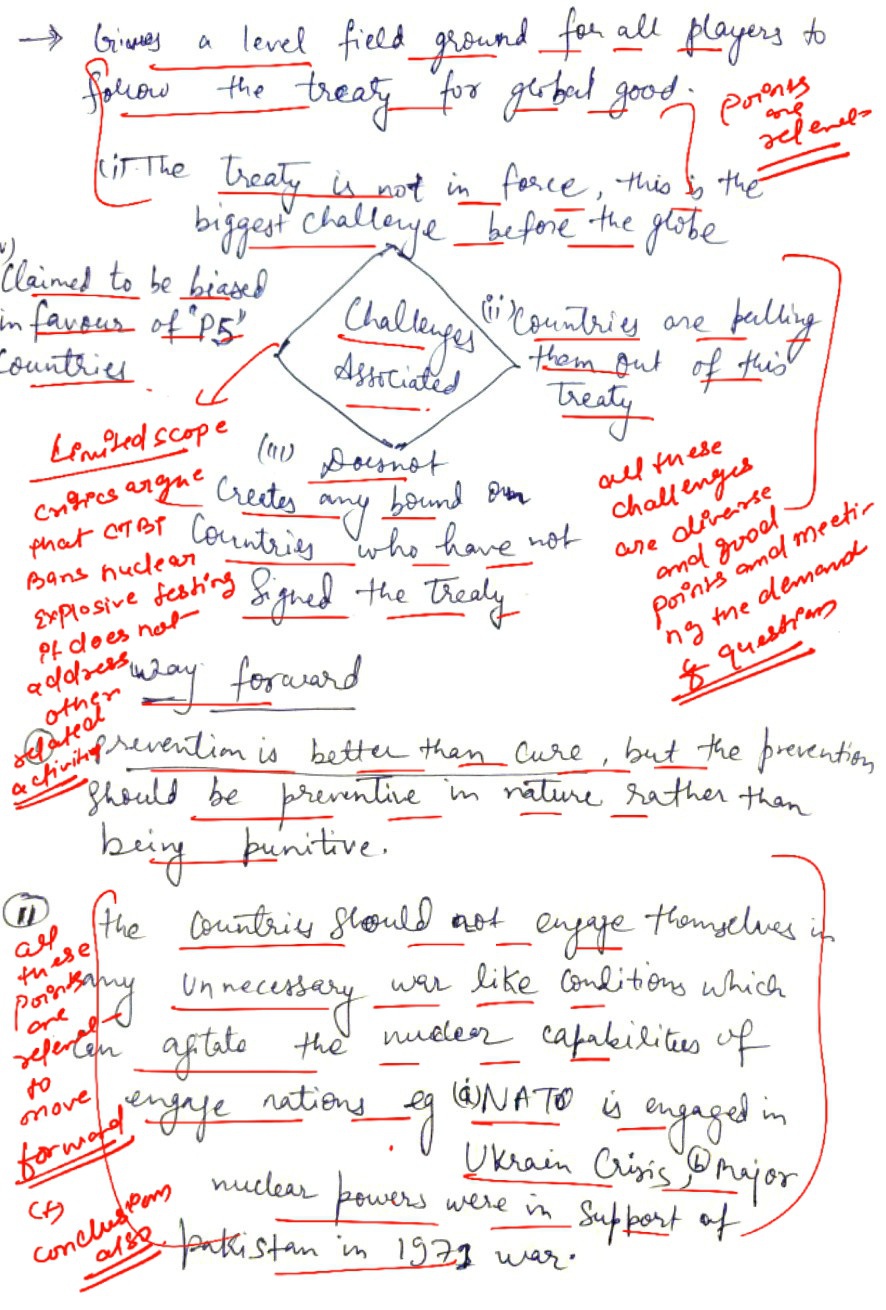 → Gives a level field ground for all players to
follow the treaty for global good.
points
are
relevant
(i) The treaty is not in force, this is the
biggest challenge before the globe
Challenges
Associated
(ii) Countries are pulling
them out of this
Treaty
(iii) Doesnot
Creates any bound on
Countries who have not
Signed the Treaty
v)
Claimed to be biased
in favour of "P5"
Countries
Limited scope
critics argue
that CTBT
Bans nuclear
explosive testing
it does not
address
other
related
activity
all these
challenges
are diverse
and good
points and meeti-
ng the demand
of question
Way forward
Prevention is better than cure, but the prevention
should be preventive in nature rather than
being punitive.
(II) the countries should not engage themselves in
any unnecessary war like conditions which
can agitate the nuclear capabilities of
engage nations eg (a) NATO is engaged in
Ukrain Crisis, (b) Major
nuclear powers were in support of
Pakistan in 1971 war.
all
these
points
are
relevant
to
move
forward
conclusion
also